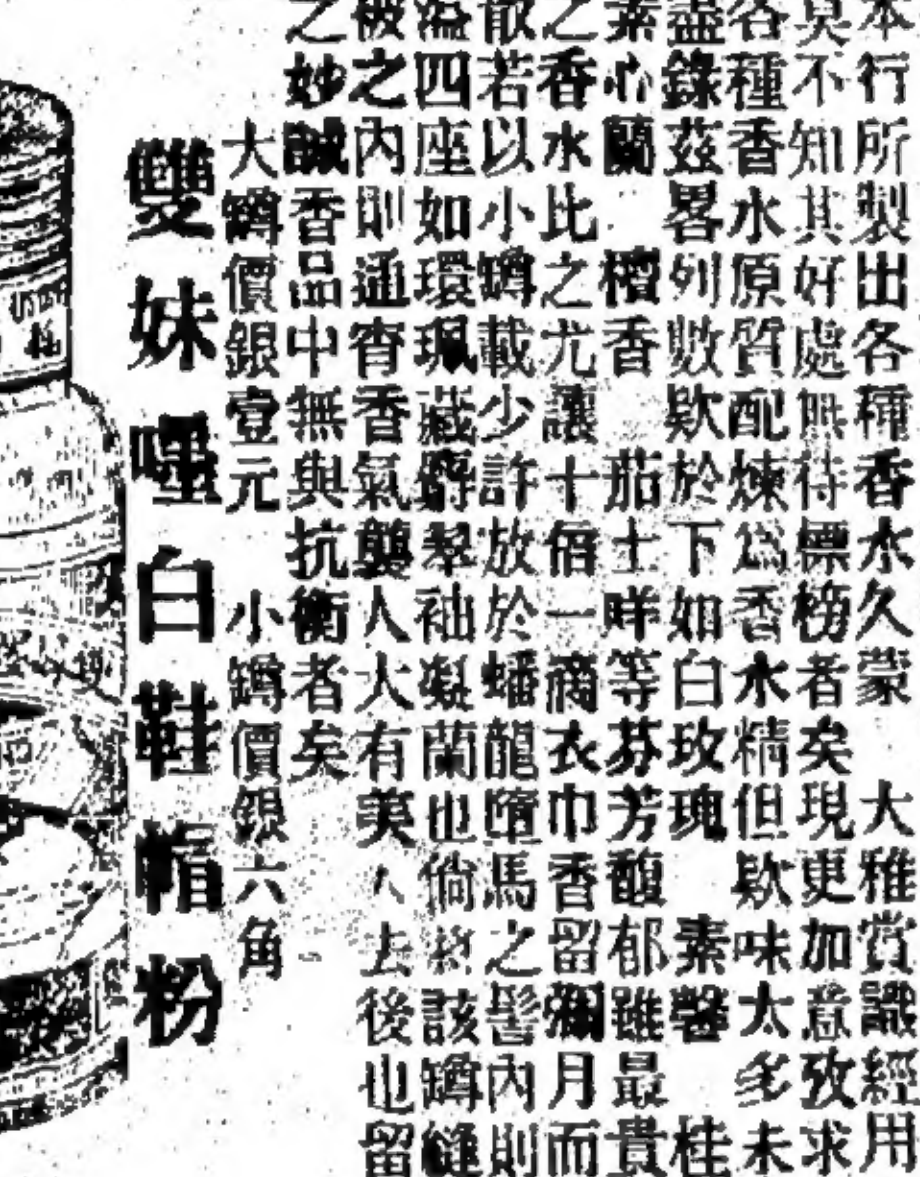 本行所製出各種香水久蒙　大雅賞識經用
莫不知其好處無待標榜者矣現更加意攷求
各種香水原質配煉為香水精但欵味太多未
盡錄茲畧列數欵於下如白玫瑰　素馨　桂
素心蘭　檀香　茄士咩等芬芳馥郁雖最貴
之香水比之尤讓十倍一滴衣巾香留彌月而
散若以小罇載少許放於蟠龍墮馬之髻內則
溢四座如環珮藏麝翠袖凝蘭也倘將該罇縫
被之內則通宵香氣襲人大有美人去後也留
之妙誠香品中無與抗衡者矣
大罇價銀壹元　小罇價銀六角
雙妹嘜白鞋帽粉